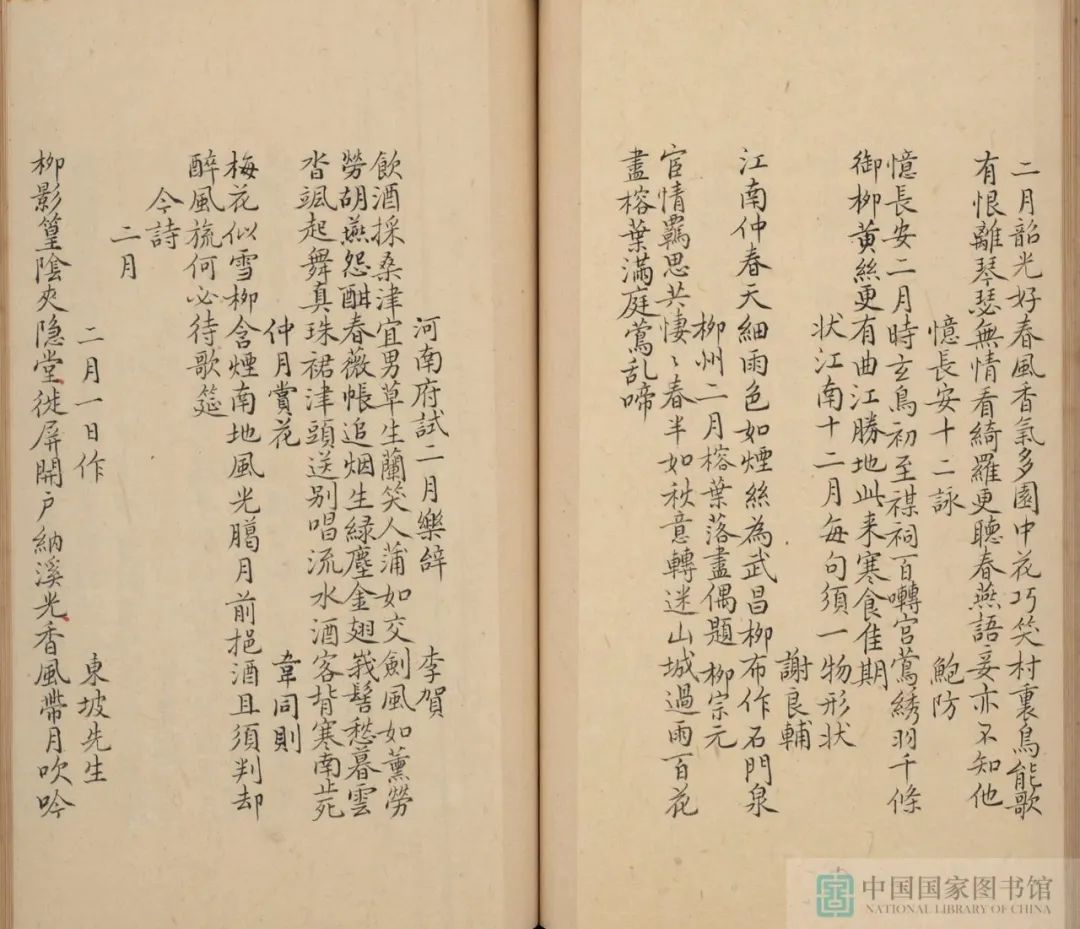 二月韶光好春風香氣多園中花巧笑村裏鳥能歌
有恨離琴瑟無情看綺羅更聽春燕語妾亦不知他
憶長安十二詠 鮑防
憶長安二月時玄鳥初至禖祠百囀宮鶯綉羽千條
御柳黃絲更有曲江勝地此来寒食佳期
状江南十二月每句須一物形状
謝良輔
江南仲春天細雨色如煙絲為武昌柳布作石門泉
柳州二月榕葉落盡偶題 柳宗元
宦情羈思共悽〻春半如秋意轉迷山城過雨百花
盡榕葉滿庭鶯乱啼
河南府試二月樂辝 李賀
飲酒採桑津宜男草生蘭笑人蒲如交劍風如薰勞
勞胡燕怨酣春薇帳追烟生緑塵金翅峩髻愁暮雲
沓颯起舞真珠裙津頭送别唱流水酒客背寒南止死
仲月賞花 韋同則
梅花似雪柳含煙南地風光臈月前挹酒且須判却
醉風旒何必待歌筵
今詩
二月
二月一日作 東坡先生
柳影篁陰夾隐堂徙屏開戸納溪光香風帶月吹吟
中国国家图书馆
NATIONAL LIBRARY OF CHINA